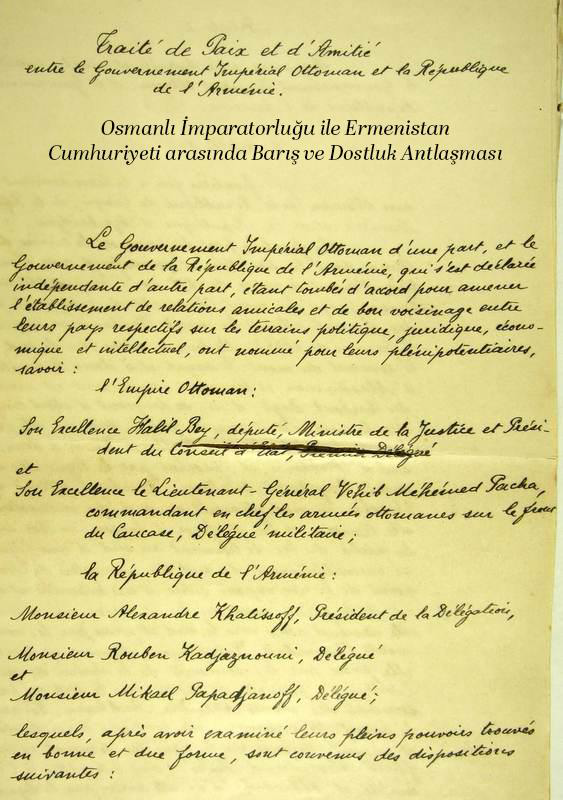 Traité de Paix et d'Amitié
entre le Gouvernement Impérial Ottoman et la République
de l'Arménie.
Osmanlı İmparatorluğu ile Ermenistan
Cumhuriyeti arasında Barış ve Dostluk Antlaşması
Le Gouvernement Impérial Ottoman d'une part, et le
Gouvernement de la République de l'Arménie, qui s'est déclarée
indépendante d'autre part, étant tombés d'accord pour amener
l'établissement de relations amicales et de bon voisinage entre
leurs pays respectifs sur les terrains politique, juridique, écono-
mique et intellectuel, ont nommé pour leurs plénipotentiaires,
savoir :
l'Empire Ottoman :
Son Excellence Halil Bey, député, Ministre de la Justice et Prési-
dent du Conseil d'Etat, Premier Délégué
et
Son Excellence le Lieutenant-Général Véhib Méhémed Pacha,
commandant en chef les armées ottomanes sur le front
du Caucase, Délégué militaire ;
la République de l'Arménie :
Monsieur Alexandre Khatissoff, Président de la Délégation,
Monsieur Rouben Kadjaznouni, Délégué
et
Monsieur Mikael Papadjanoff, Délégué ;
lesquels, après avoir examiné leurs pleins pouvoirs trouvés
en bonne et due forme, sont convenus des dispositions
suivantes :